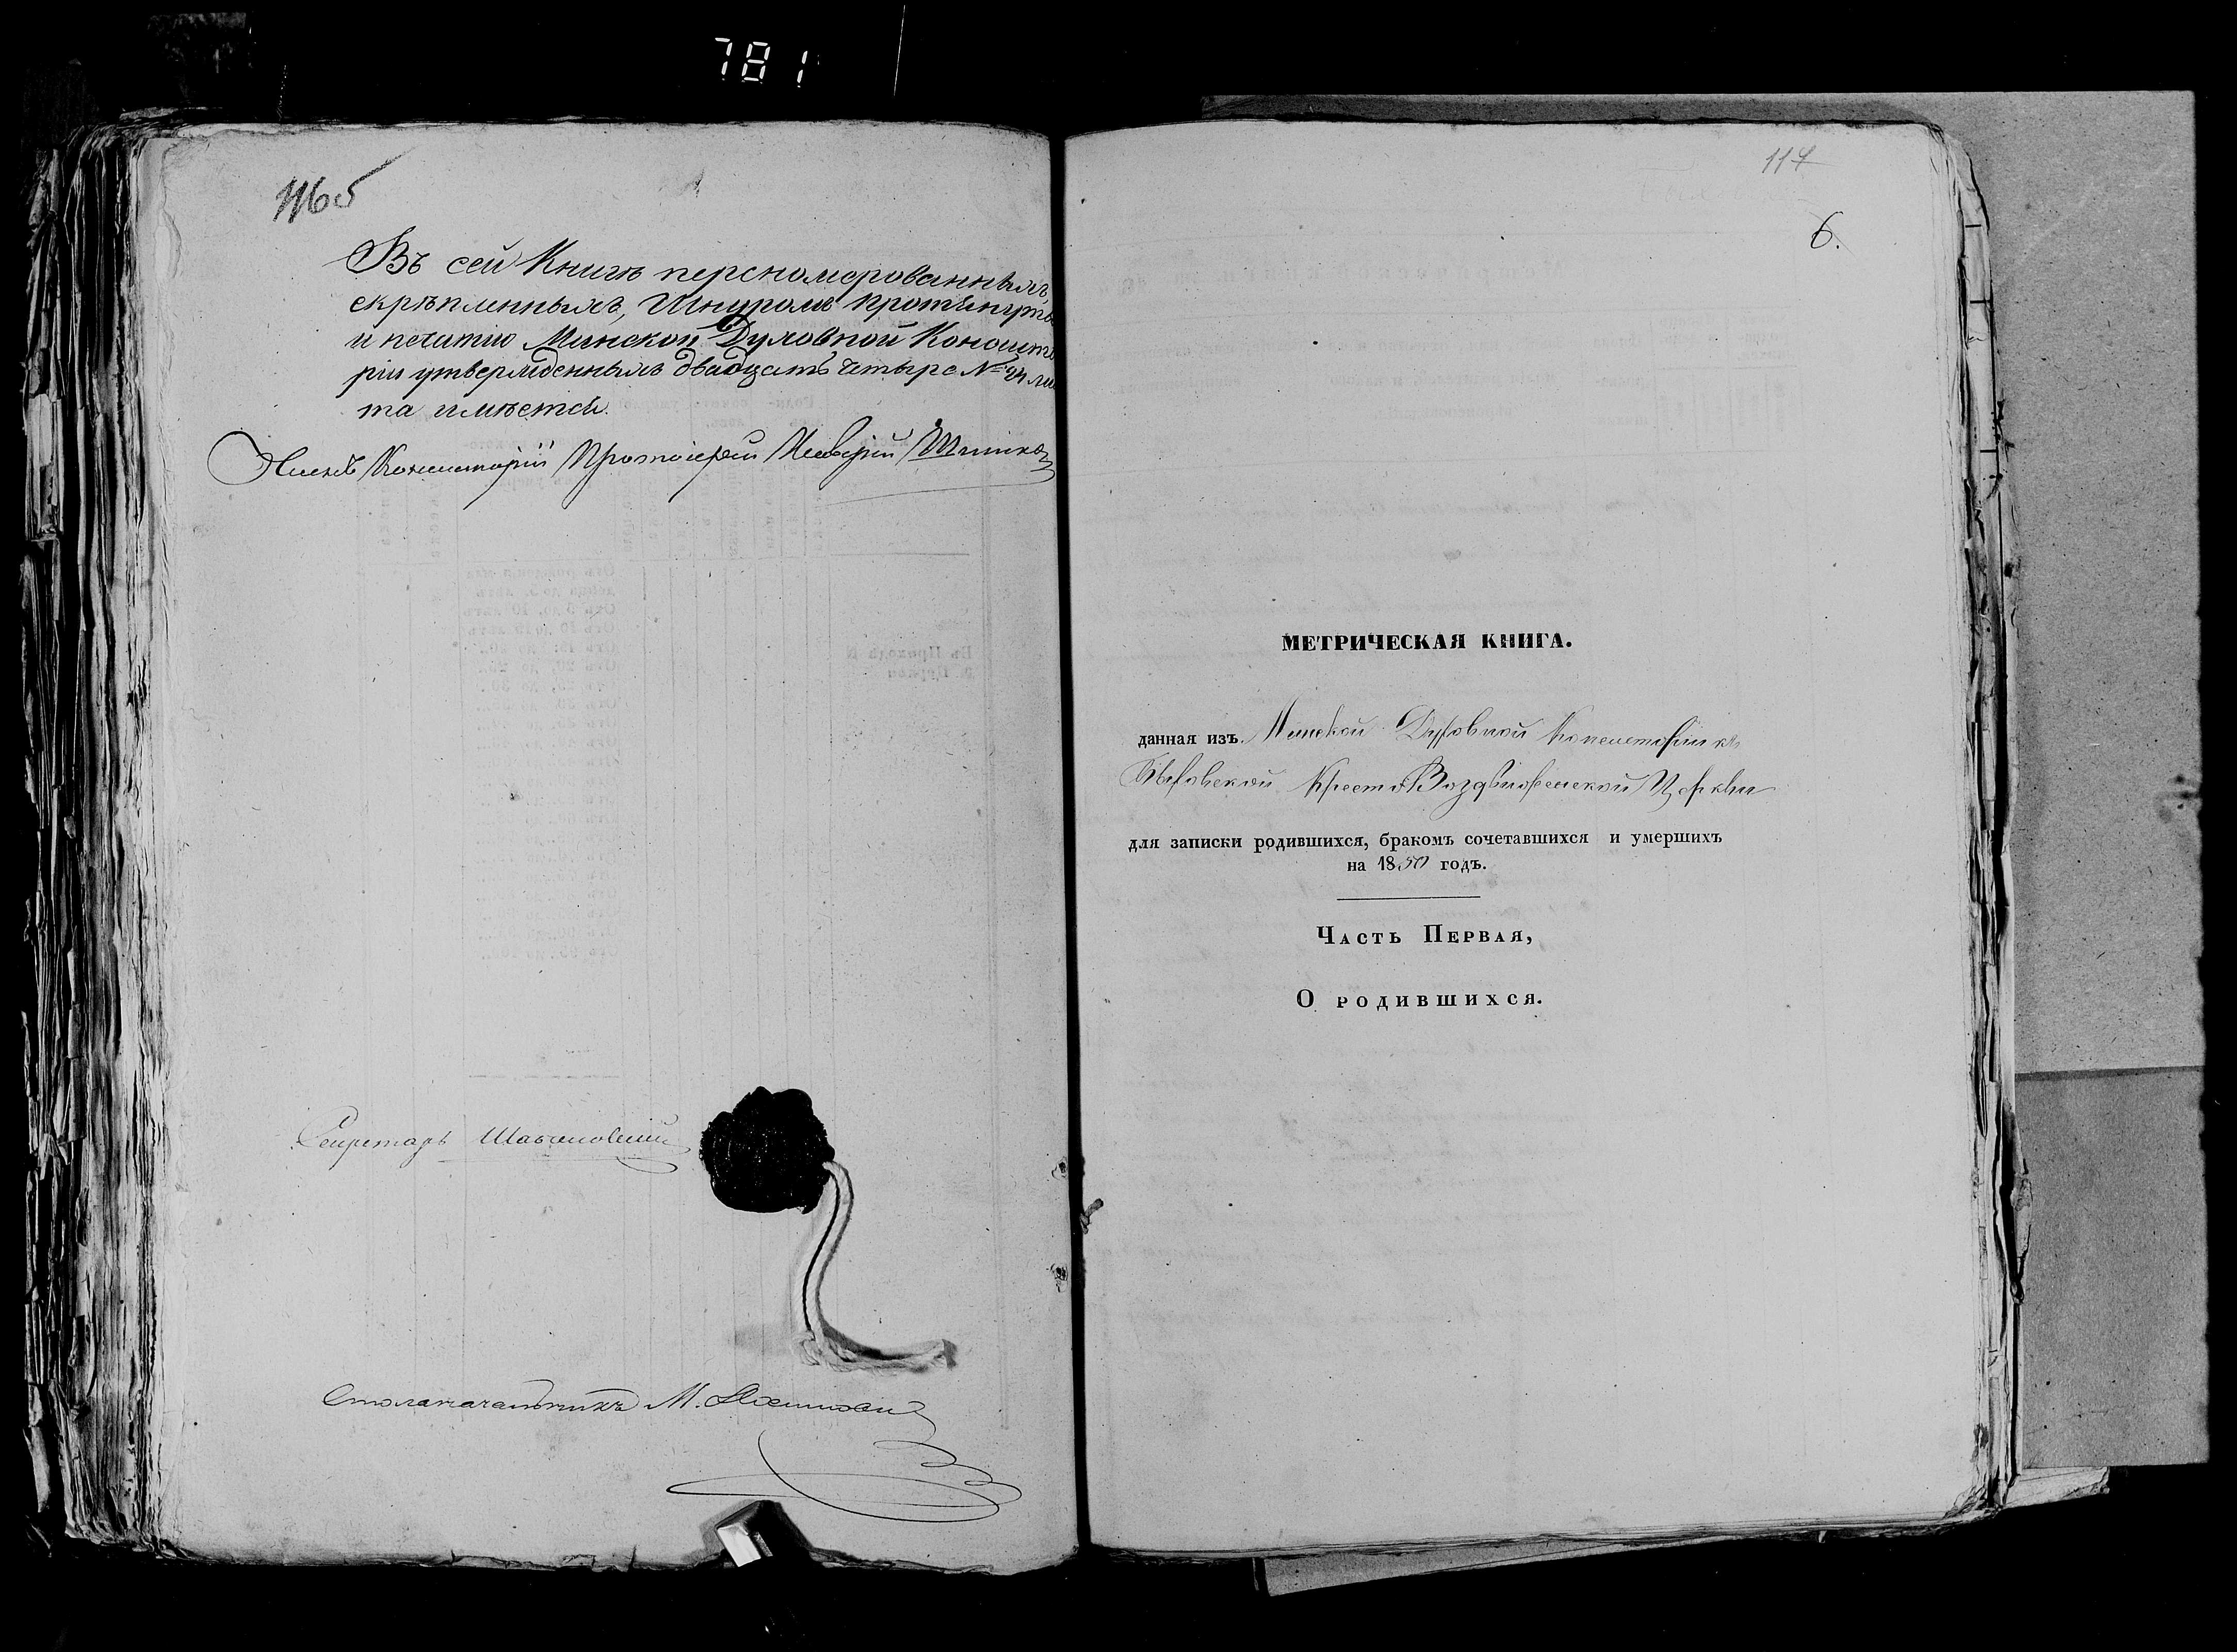 781
116об
Въ сей Книгѣ перенумерованныхъ,
скрѣпленныхъ, Шнуромъ протянуты
и печатью Минской Духовной Консисто
ріи утвержденныхъ двадцать четыре № 24 лис
та имѣется.
Членъ Консисторіи Протоіерей
Секретарь
Столоначальникъ М.
117
6.
МЕТРИЧЕСКАЯ КНИГА.
данная изъ Минской Духовной Консисторіи къ
Кресто Воздвиженской Церкви
для записки родившихся, бракомъ сочетавшихся и умершихъ
на 1850 годъ.
Часть Первая,
О родившихся.